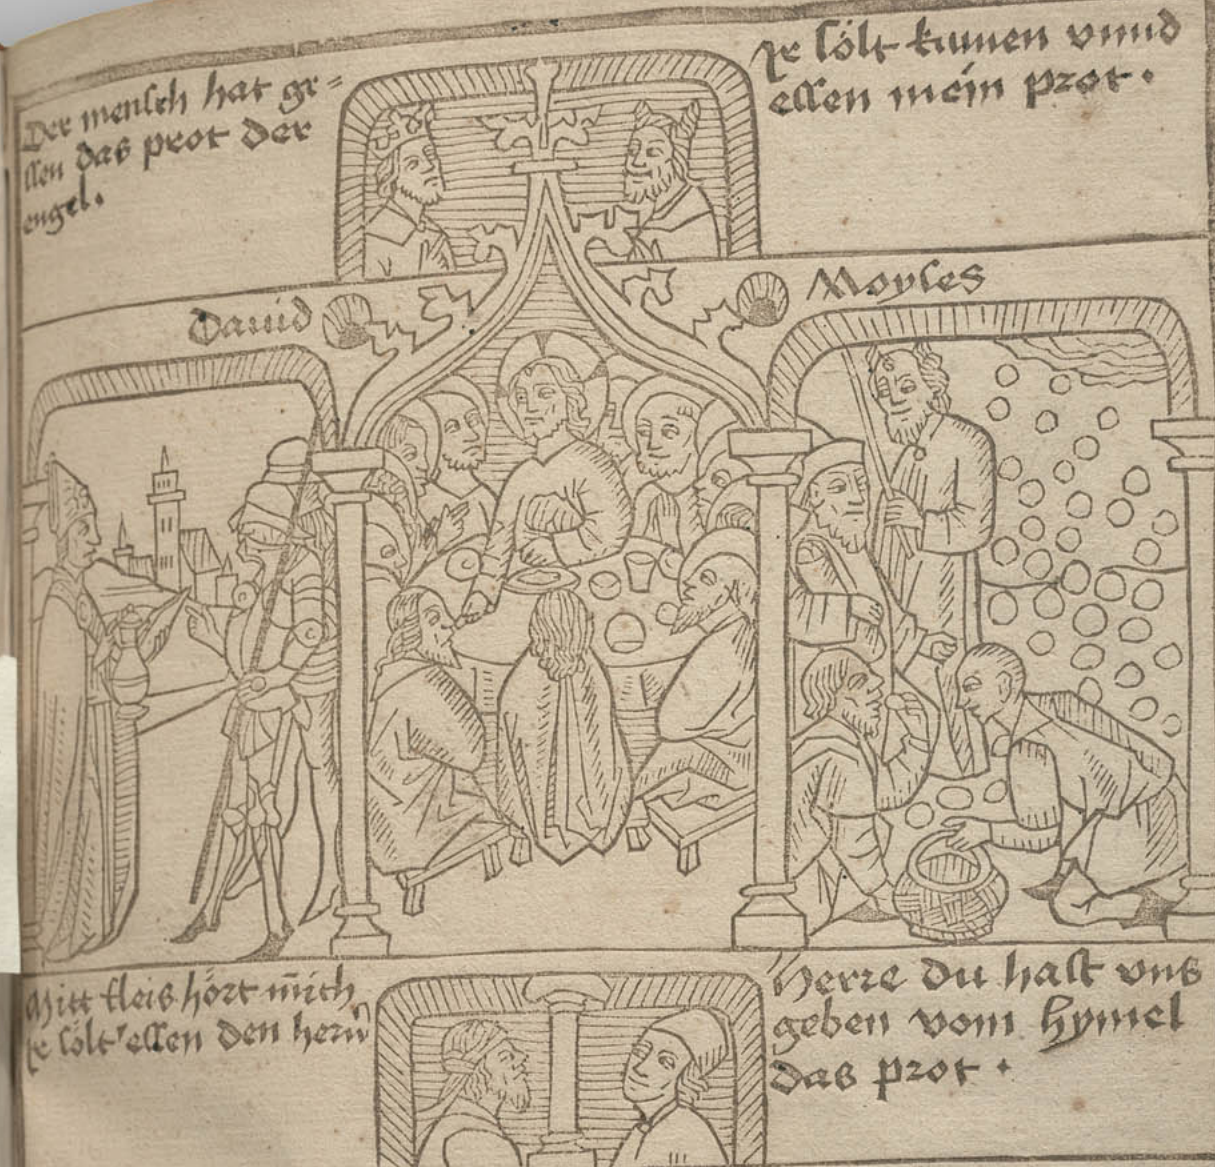 Der mensch hat ge-
ssen das prot der
engel.
Ir sölt kumen vnnd
essen mein prot.
Dauid
Moyses
Mitt fleis hört mich
Ir sölt essen den hern
Herre du hast vns
geben vom hymel
das prot.